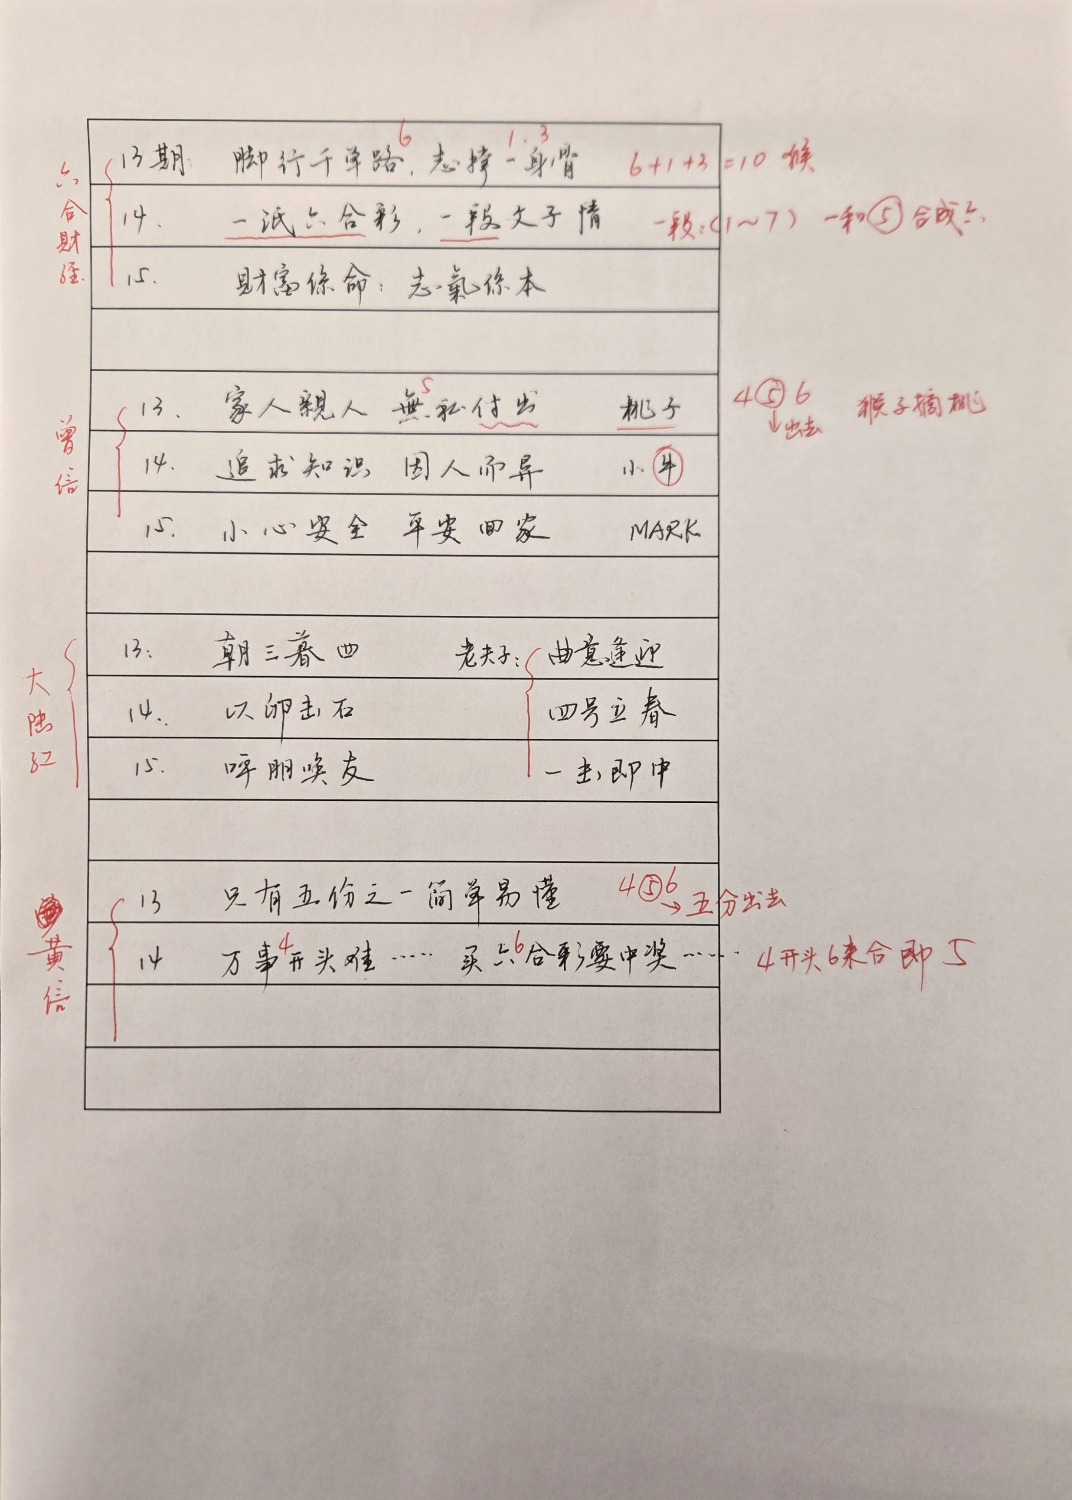 六合財經
6 1.3
13期: 脚行千单路, 志撑一身骨 6+1+3=10 猴
14. 一派六合彩, 一段父子情 一段:(1～7) 一和⑤合成六
15. 財富係命: 志氣係本
曾信
5
13. 家人親人 無私付出 桃子 4⑤6 猴子摘桃
↓出去
14. 追求知识 因人而异 小牛
15. 小心安全 平安回家 MARK
大陆红
13: 朝三暮四 老夫子: 曲意逢迎
14. 以卵击石 四号立春
15. 呼朋唤友 一击即中
黄信
13 只有五份之一简单易懂 4⑤6
→五分出去
4 6
14 万事开头难…… 买六合彩要中奖…… 4开头6来合即5